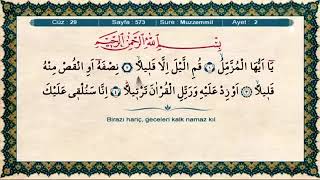 Cüz : 29 Sayfa : 573 Sure : Muzzemmil Ayet : 2
بِسْمِ اللّٰهِ الرَّحْمٰنِ الرَّحِيمِ
يَٓا اَيُّهَا الْمُزَّمِّلُۙ ﴿١﴾ قُمِ الَّيْلَ اِلَّا قَلٖيلاًۙ ﴿٢﴾ نِصْفَهُٓ اَوِ انْقُصْ مِنْهُ
قَلٖيلاًۙ ﴿٣﴾ اَوْ زِدْ عَلَيْهِ وَرَتِّلِ الْقُرْاٰنَ تَرْتٖيلاًؕ ﴿٤﴾ اِنَّا سَنُلْقٖي عَلَيْكَ
Birazı hariç, geceleri kalk namaz kıl